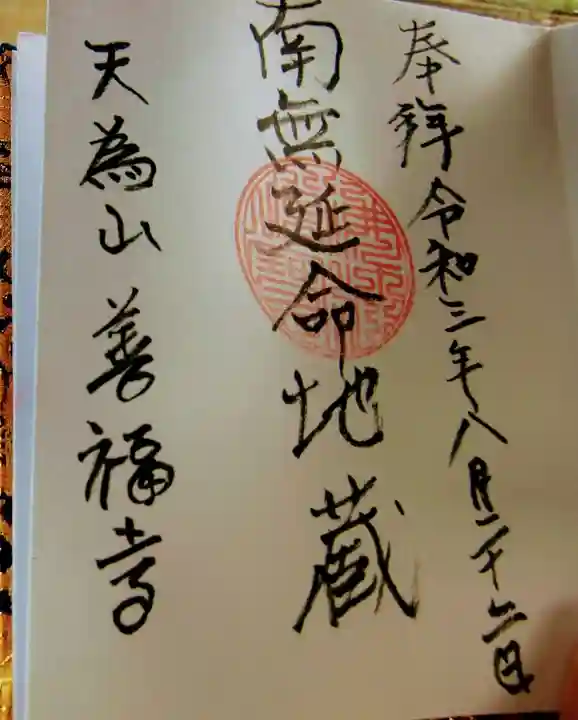 奉拝 令和三年八月二十二日
南無延命地蔵
天為山 善福寺